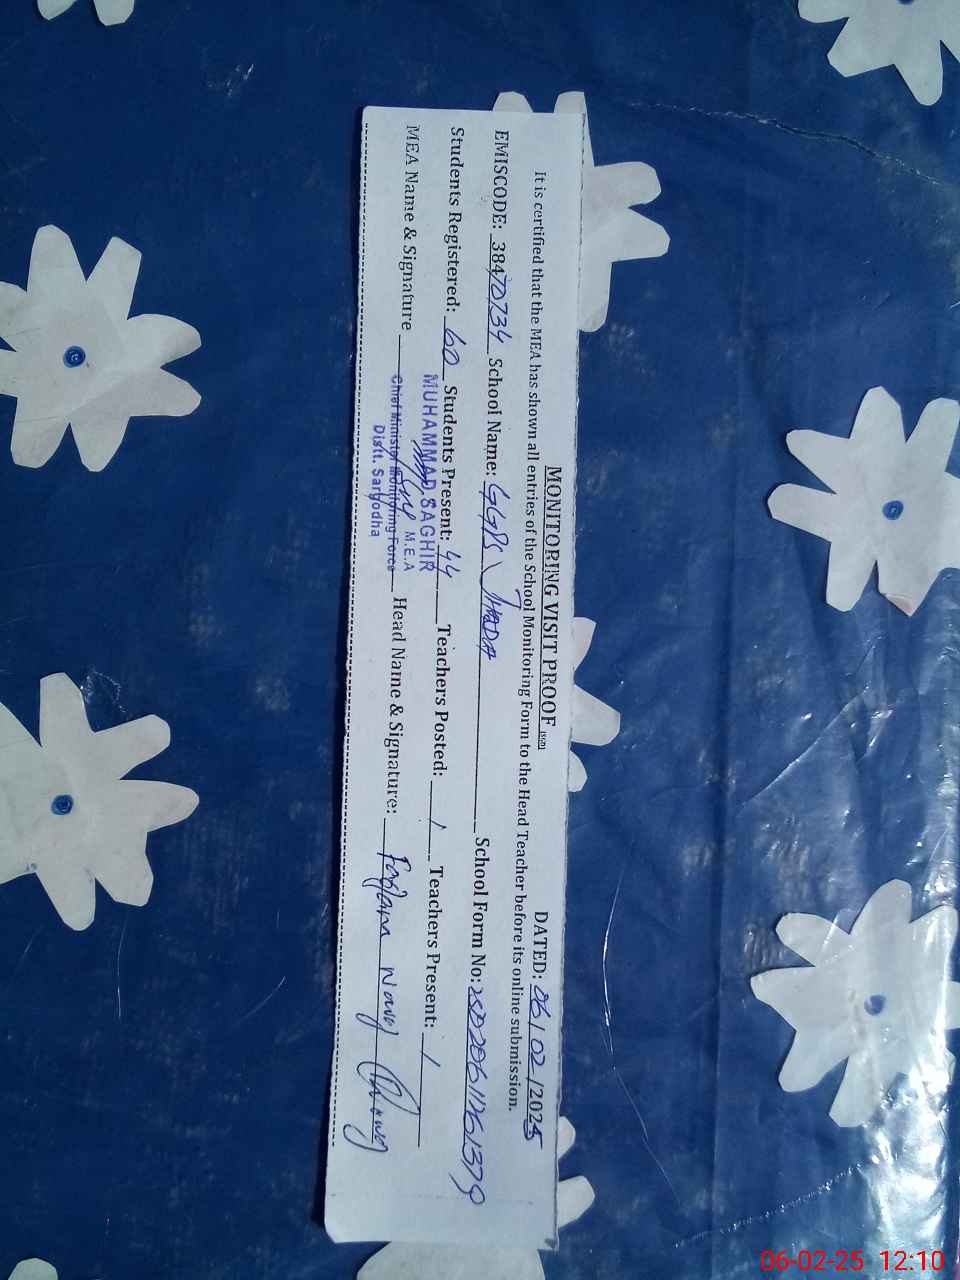 MONITORING VISIT PROOF
DATED: 06/02/2025
It is certified that the MEA has shown all entries of the School Monitoring Form to the Head Teacher before its online submission.
EMISCODE: 38470734 School Name: GGPS School Form No:
Students Registered: 60 Students Present: 44 Teachers Posted: 1 Teachers Present: 1
MEA Name & Signature Head Name & Signature:
MUHAMMAD SAGHIR
M.E.A
Chief Minister Monitoring Force
Distt. Sargodha
06-02-25 12:10